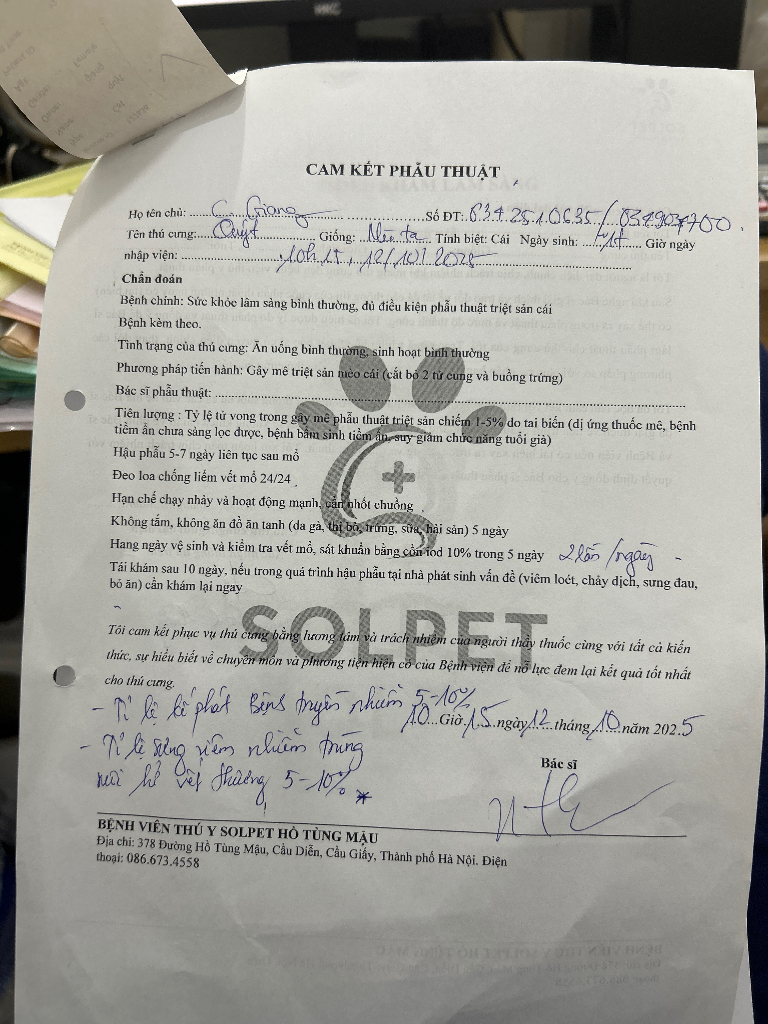 CAM KẾT PHẪU THUẬT
Họ tên chủ: C. Giang Số ĐT: 034.25.1.0635 / 034903
Tên thú cưng: Quýt Giống: Mèo ta Tính biệt: Cái Ngày sinh: Giờ ngày
nhập viện: 10h15, 12/10/2025
Chẩn đoán
Bệnh chính: Sức khỏe lâm sàng bình thường, đủ điều kiện phẫu thuật triệt sản cái
Bệnh kèm theo.
Tình trạng của thú cưng: Ăn uống bình thường, sinh hoạt bình thường
Phương pháp tiến hành: Gây mê triệt sản mèo cái (cắt bỏ 2 tử cung và buồng trứng)
Bác sĩ phẫu thuật:
Tiên lượng : Tỷ lệ tử vong trong gây mê phẫu thuật triệt sản chiếm 1-5% do tai biến (dị ứng thuốc mê, bệnh
tiềm ẩn chưa sàng lọc được, bệnh bẩm sinh tiềm ẩn, suy giảm chức năng tuổi già)
Hậu phẫu 5-7 ngày liên tục sau mổ
Đeo loa chống liếm vết mổ 24/24
Hạn chế chạy nhảy và hoạt động mạnh, cần nhốt chuồng
Không tắm, không ăn đồ ăn tanh (da gà, thịt bò, trứng, sữa, hải sản) 5 ngày
Hang ngày vệ sinh và kiểm tra vết mổ, sát khuẩn bằng cồn iod 10% trong 5 ngày 2 lần /ngày
Tái khám sau 10 ngày, nếu trong quá trình hậu phẫu tại nhà phát sinh vấn đề (viêm loét, chảy dịch, sưng đau,
bỏ ăn) cần khám lại ngay
SOLPET
Tôi cam kết phục vụ thú cưng bằng lương tâm và trách nhiệm của người thầy thuốc cùng với tất cả kiến
thức, sự hiểu biết về chuyên môn và phương tiện hiện có của Bệnh viện để nỗ lực đem lại kết quả tốt nhất
cho thú cưng.
- Tỉ lệ kế phát Bệnh truyền nhiễm 5-10%
10 Giờ 15 ngày 12 tháng 10 năm 2025
- Tỉ lệ sưng viêm nhiễm trùng
hở vết thương 5-10% *
Bác sĩ
BỆNH VIÊN THÚ Y SOLPET HỒ TÙNG MẬU
Địa chỉ: 378 Đường Hồ Tùng Mậu, Cầu Diễn, Cầu Giấy, Thành phố Hà Nội. Điện
thoại: 086.673.4558